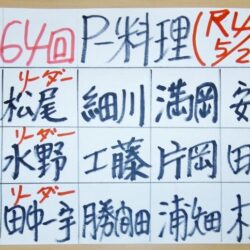 64回 P-料理 (R4
5/2
リーダー
松尾 細川 満岡 安
リーダー
水野 工藤 片岡 田
リーダー
田中一宇 勝間田 浦畑 木